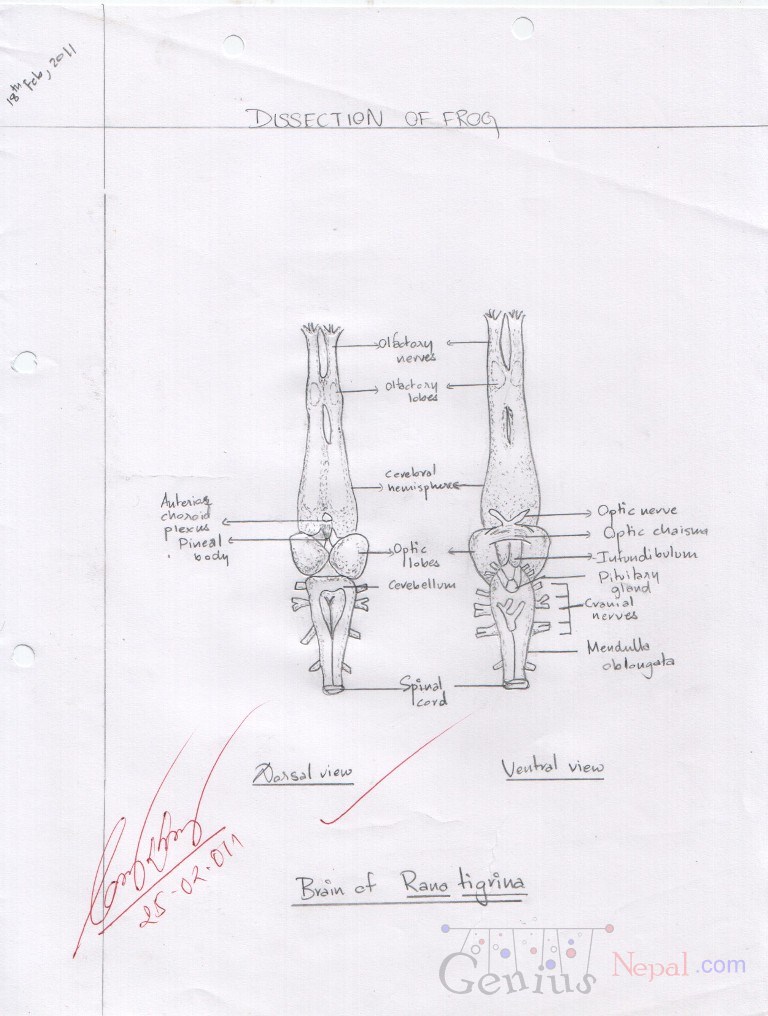 18th Feb, 2011
DISSECTION OF FROG
Olfactory
nerves
Olfactory
lobes
Cerebral
hemisphere
Anterior
choroid
plexus
Pineal
body
Optic
lobes
Cerebellum
Spinal
cord
Optic nerve
Optic chaisma
Infundibulum
Pituitary
gland
Cranial
nerves
Mendulla
oblongata
Dorsal view
Ventral view
25-02-011
Brain of Rana tigrina
Genius Nepal.com